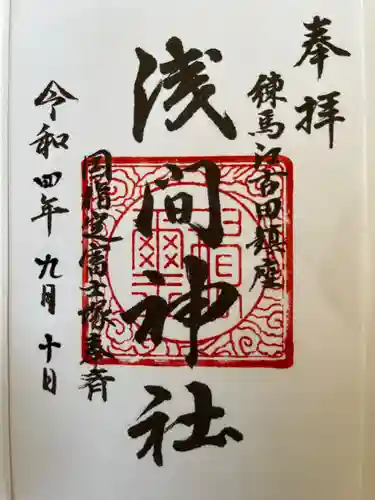 奉拝
練馬江古田鎮座
浅間神社
国指定富士塚奉斉
令和四年九月十日